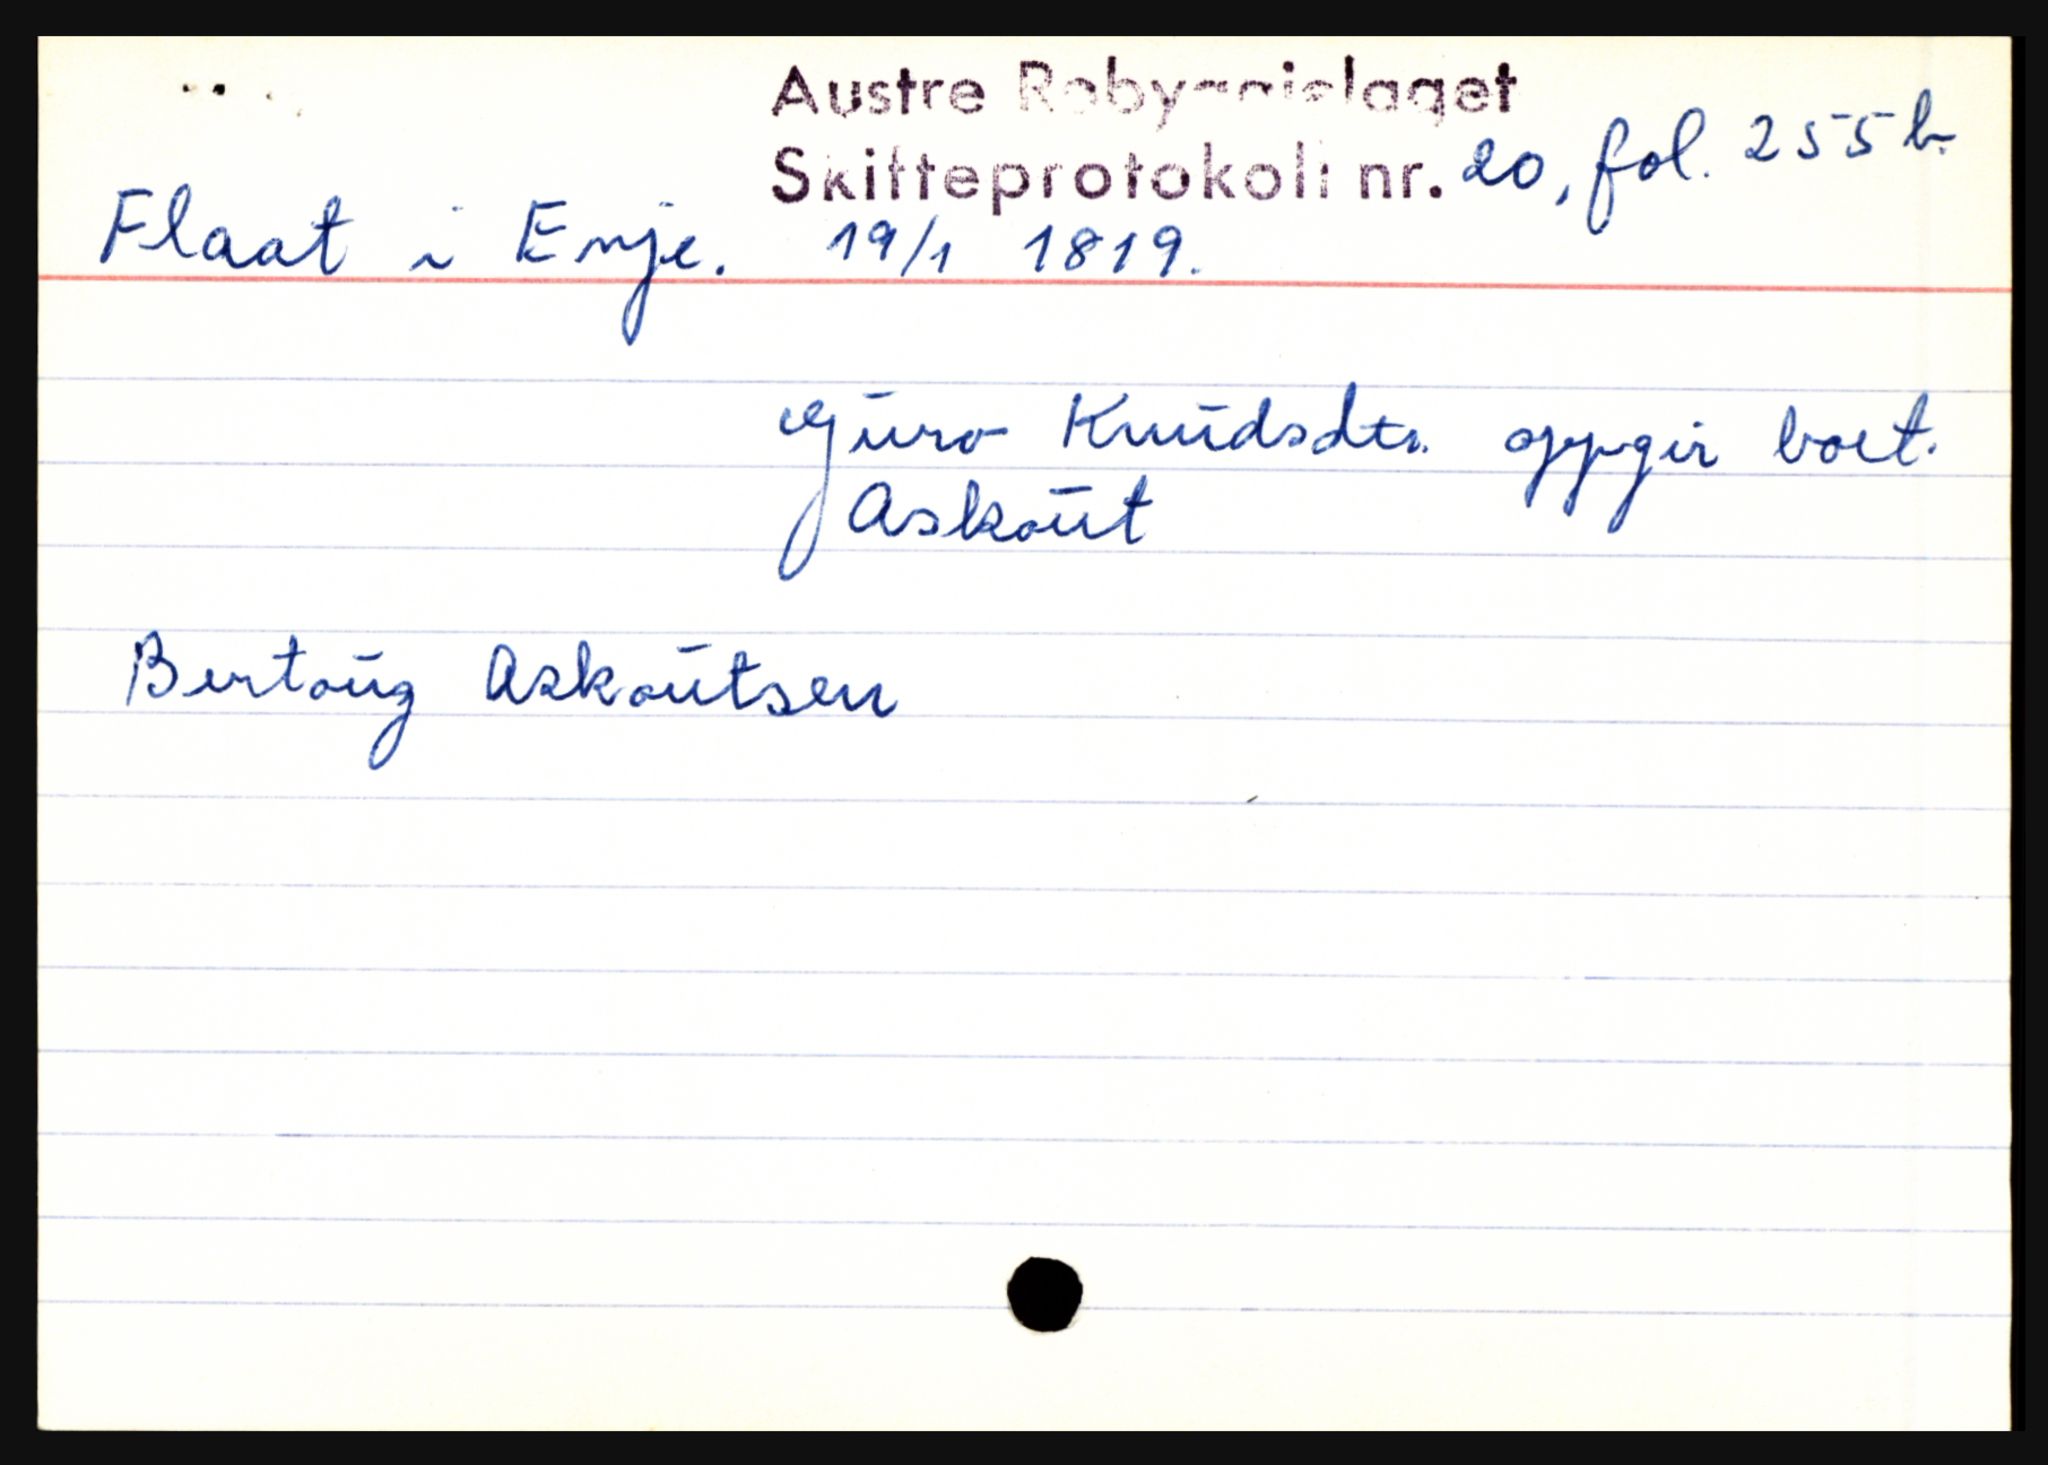 Austre Robyggjelaget
Skifteprotokoll nr. 20, fol. 255 b.
Flaat i Evje. 19/1 1819.
Guro Knudsdtr. oppgir boet.
Askout
Bertoug Askoutsen